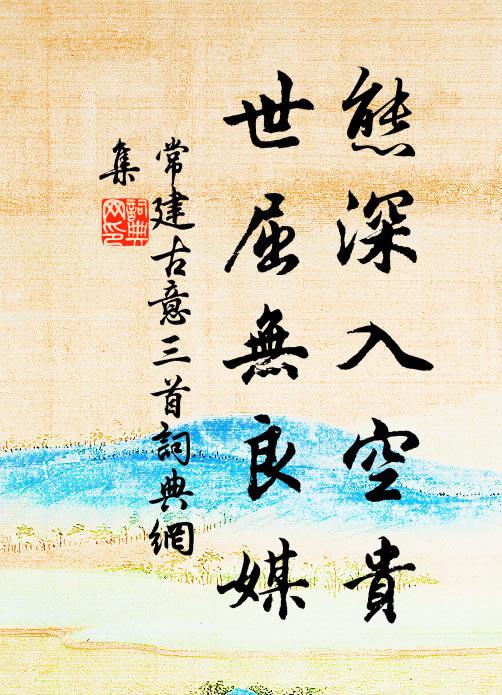 熊深入空貴
世屈無良媒
常建古意三首詞典網
集
詞典網印